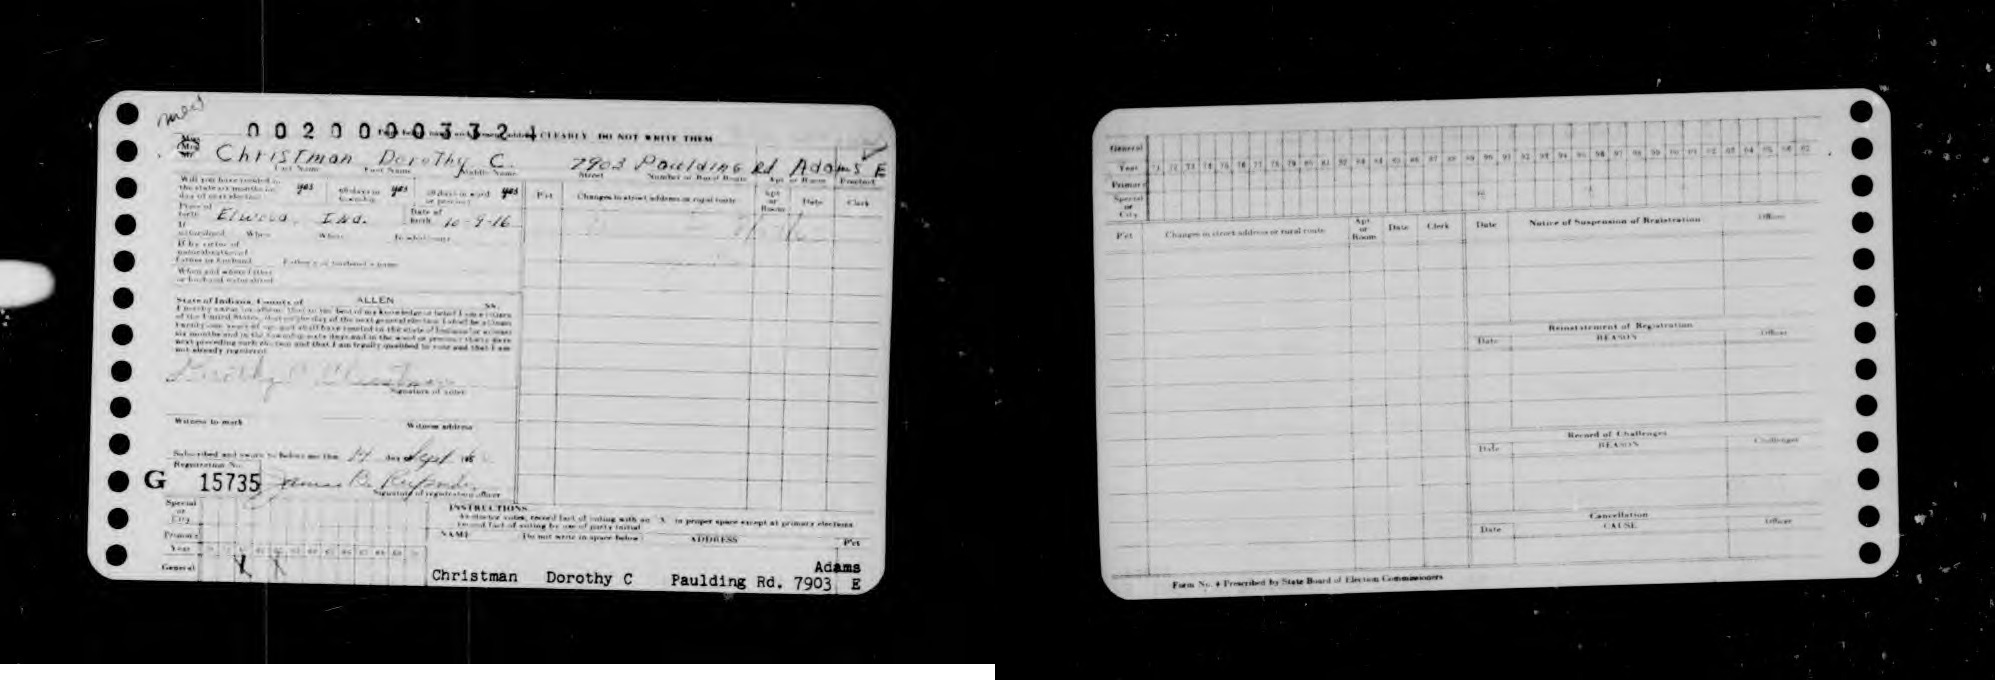 new
00200003324
CLEARLY DO NOT WRITE THEM
Christman Dorothy C. 7903 Paulding Rd Adams E
Last Name First Name Middle Name Street Number or Rural Route Apt or Room Precinct
Will you have resided in
the state six months on yes 60 days in township yes 30 days in ward or precinct yes
day of next election
Pct Changes in street address or rural route Apt or Room Date Clerk
Place of birth Elwood, Ind. Date of birth 10-9-16
If naturalized When Where In what court
If by virtue of
naturalization of
Father or husband Father's or husband's name
When and where father
or husband naturalized
State of Indiana, County of ALLEN ss.
I hereby swear (or affirm) that to the best of my knowledge or belief I am a citizen
of the United States, that on the day of the next general election I shall be at least
twenty-one years of age and shall have resided in the state of Indiana for at least
six months and in the township sixty days and in the ward or precinct thirty days
next preceding such election and that I am legally qualified to vote and that I am
not already registered
Dorothy C Christman
Signature of voter
Witness to mark Witness address
Subscribed and sworn to before me this 14 day Sept
Registration No.
G 15735 James
Signature of registration officer
Special
or
City
Primary
Year
General X X
INSTRUCTIONS
in proper space except at primary elections
record fact of voting by use of party initial
NAME Do not write in space below ADDRESS Pct
Adams
Christman Dorothy C Paulding Rd. 7903 E
General
Year 71 72 73 74 75 76 77 78 79 80 81 82 83 84 85 86 87 88 89 90 91 92 93 94 95 96 97 98 99 00 01 02 03 04 05 06 07
Primary
Special
or
City
Pct Changes in street address or rural route Apt or Room Date Clerk
Date Notice of Suspension of Registration Officer
Reinstatement of Registration
Date REASON Officer
Record of Challenges
Date REASON Challenger
Cancellation
Date CAUSE Officer
Form No. 4 Prescribed by State Board of Election Commissioners